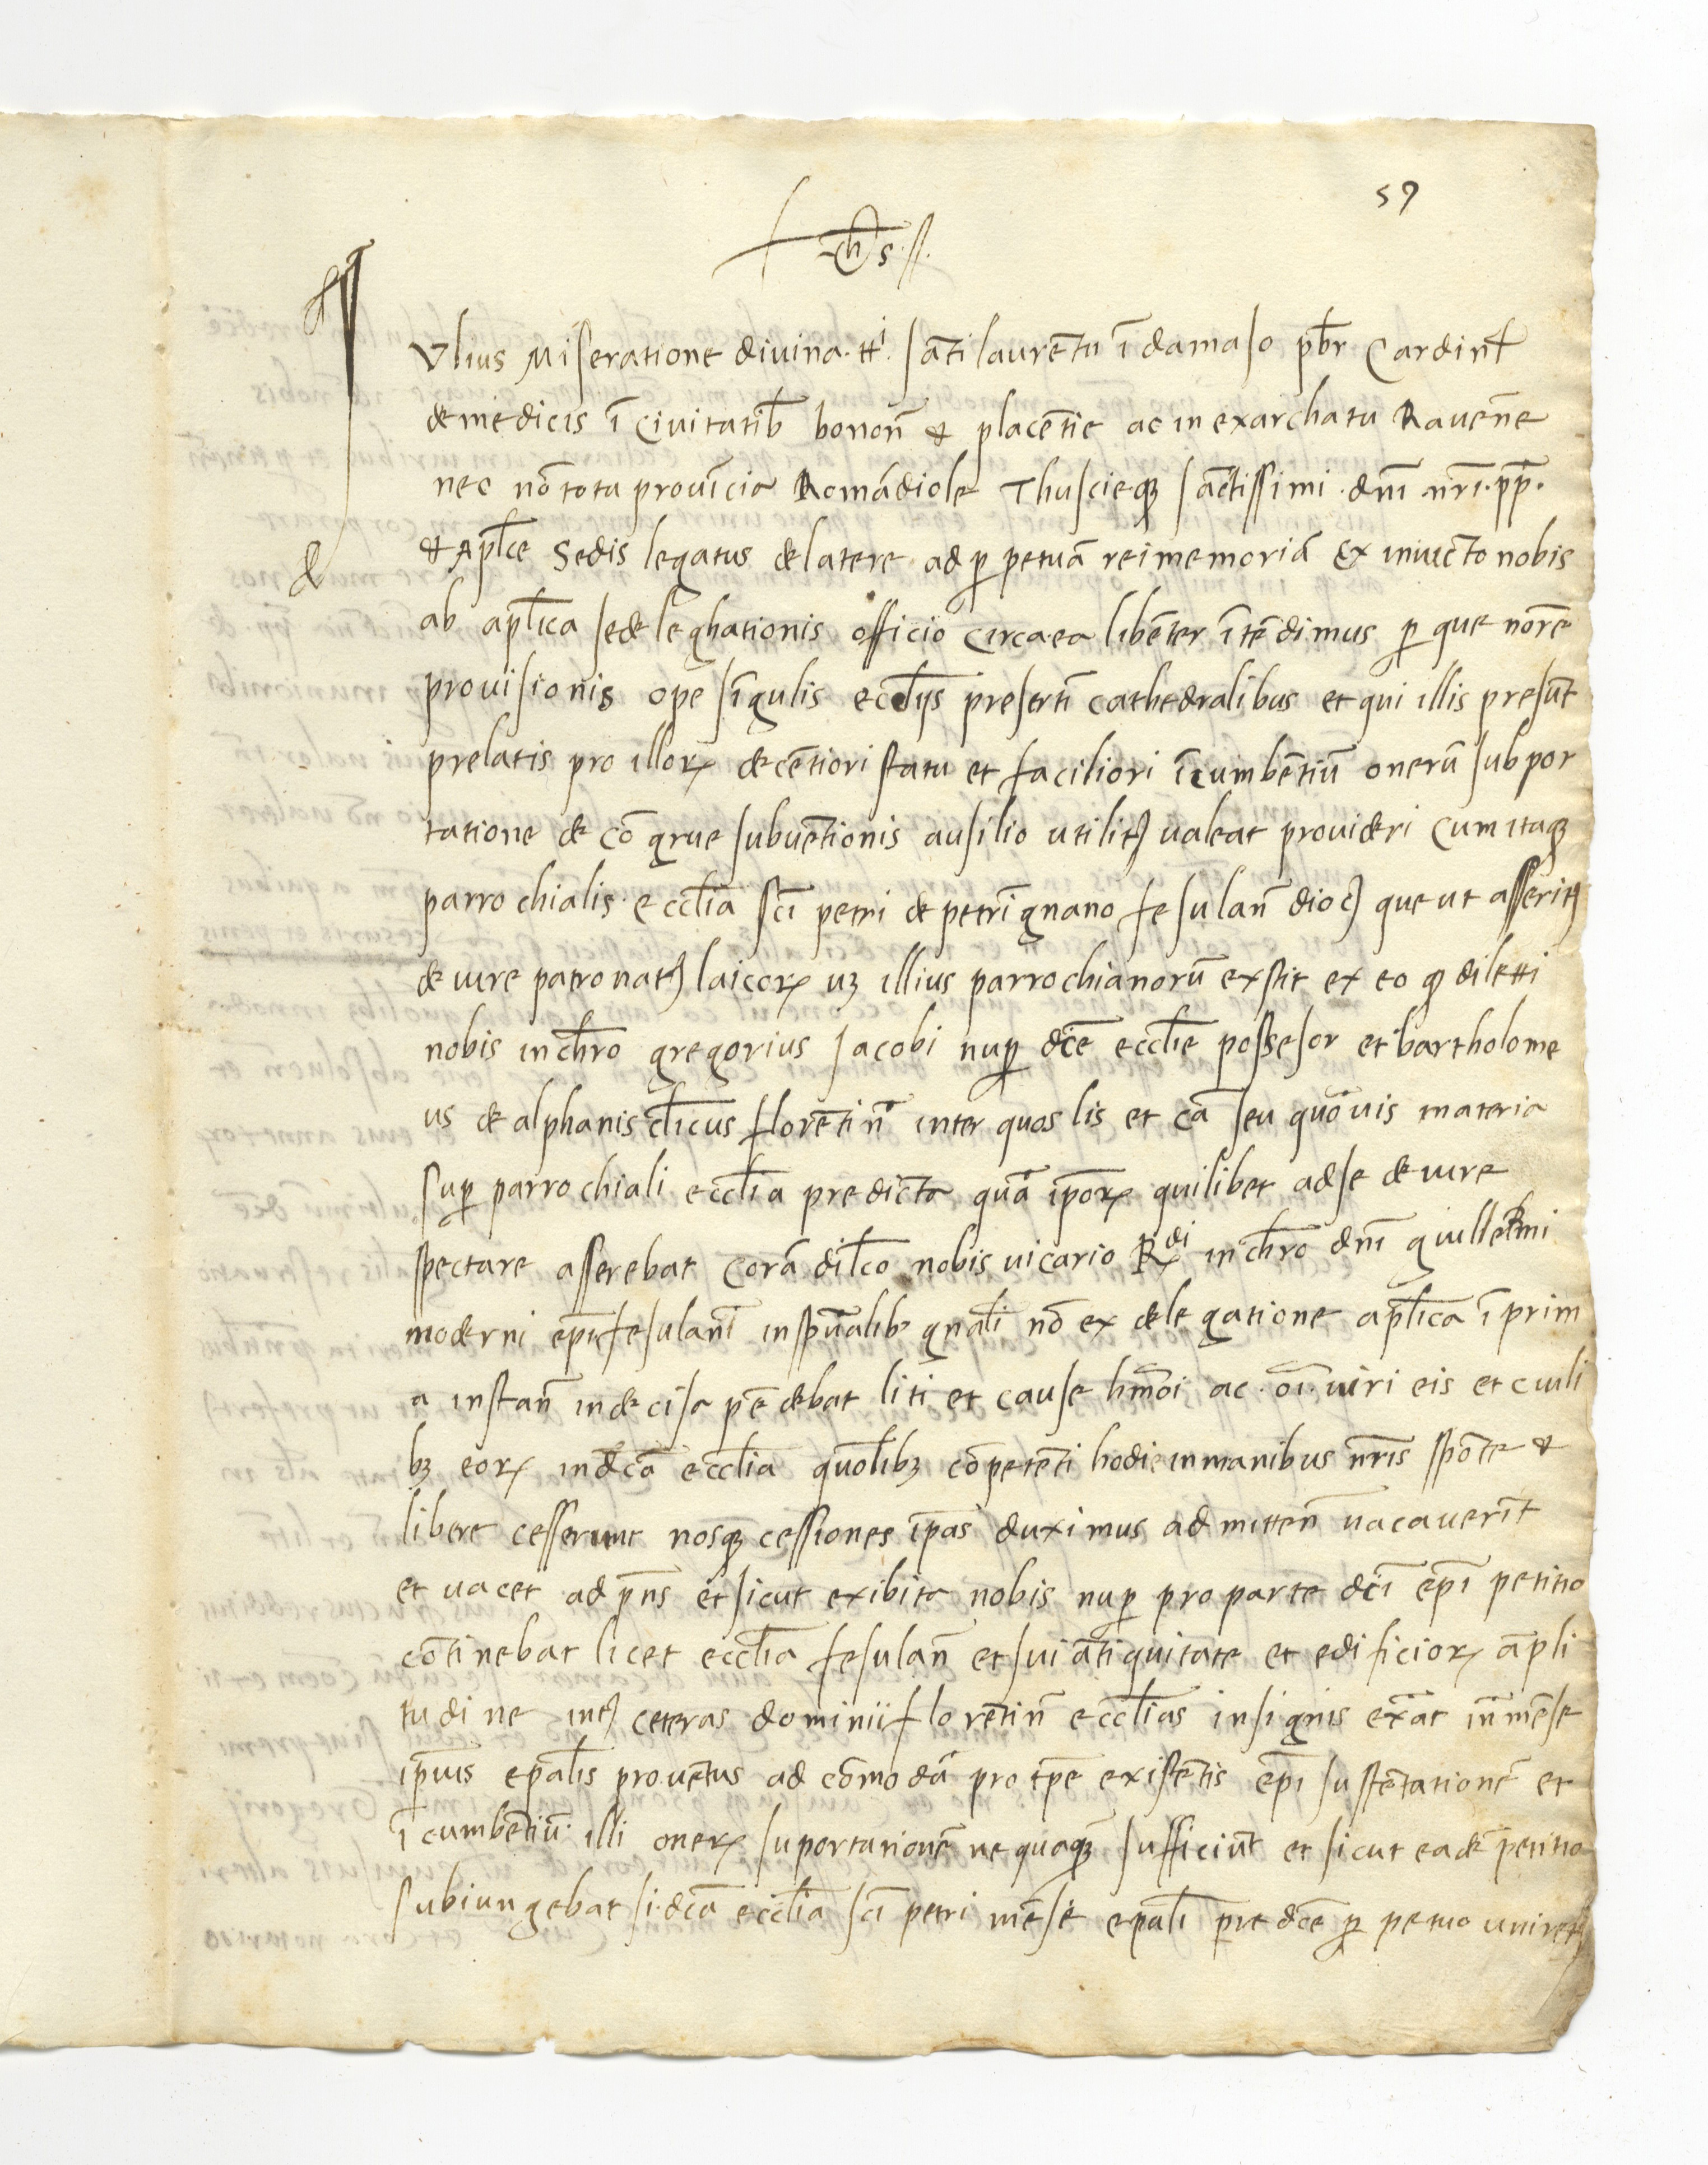 59
yhs
IVlius Miseratione divina. tt.i sāti laurētii ī damaso pb̄r Cardinł
de medicis ī Civitatib̄ bonon̄ & placētie ac in exarchatu Ravēne
nec nō tota provīcia Romādiole Thuscieqꝫ sāctissimi. dn̄i nr̄i. pp̄.
& Apl̄ce Sedis legatus de latere ad ꝑpetuā rei memoriā Ex iniucto nobis
ab apl̄ica sede leghationis officio circa ea libēter ītēdimus ꝑ que nōre
provisionis ope sīgulis eccl̄ijs presertī cathedralibus et qui illis presūt
prelatis pro illoꝝ decētiori statu et faciliori īcumbētiū onerū subpor
tatione de cōgrue subvētionis ausilio utilitꝫ valeat provideri Cum itaqꝫ
parrochialis eccl̄ia sc̄i petri de petrīgnano fesulan̄ dioc̄ que ut asseritꝫ
de iure patronatꝫ laicoꝝ uꝫ illius parrochianorū exstit ex eo qꝫ diletti
nobis in chr̄o gregorius Jacobi nuꝑ dc̄e eccl̄ie possesor et bartholome
us de alphanis cl̄icus florētin̄ inter quos lis et cā seu quāvis materia
suꝑ parrochiali eccl̄ia predicta quā ip̄oꝝ quilibet ad se de iure
spectare asserebat Corā dil̄co nobis vicario R.di in chr̄o dn̄i guillelmi
moderni ep̄i fesulani in spūalib; gn̄ali nō ex delegatione apl̄ica ī prim
a instan̄ indecisa pēdebat liti et cause hm̄oi ac. oī. iuri eis et cuili
bꝫ eoꝝ in dc̄a eccl̄ia quol̄ibꝫ cōpetēti hodie in manibus nr̄is spōte &
libere cesserunt nosqꝫ cessiones ip̄as duximus admitten̄ vacaverīt
et vacet ad pn̄s et sicut exibita nobis nuꝑ pro parte dc̄i ep̄i petitio
cōtinebat licet eccl̄ia fesulan̄ et sui ātiquitate et edificioꝝ āpli
tudine intꝫ ceteras dominii florētin̄ eccl̄ias insignis exāt tn̄ mēse
ip̄ius ep̄alis provētus ad cōmodā pro tp̄e existētis ep̄i sustētationē et
īcumbētiū. illi oneꝝ suportationē nequaqꝫ sufficiūt et sicut eadē petitio
subiungebat si dc̄a eccl̄ia sc̄i petri mēse ep̄ali predc̄e ꝑpetuo uniretꝫ